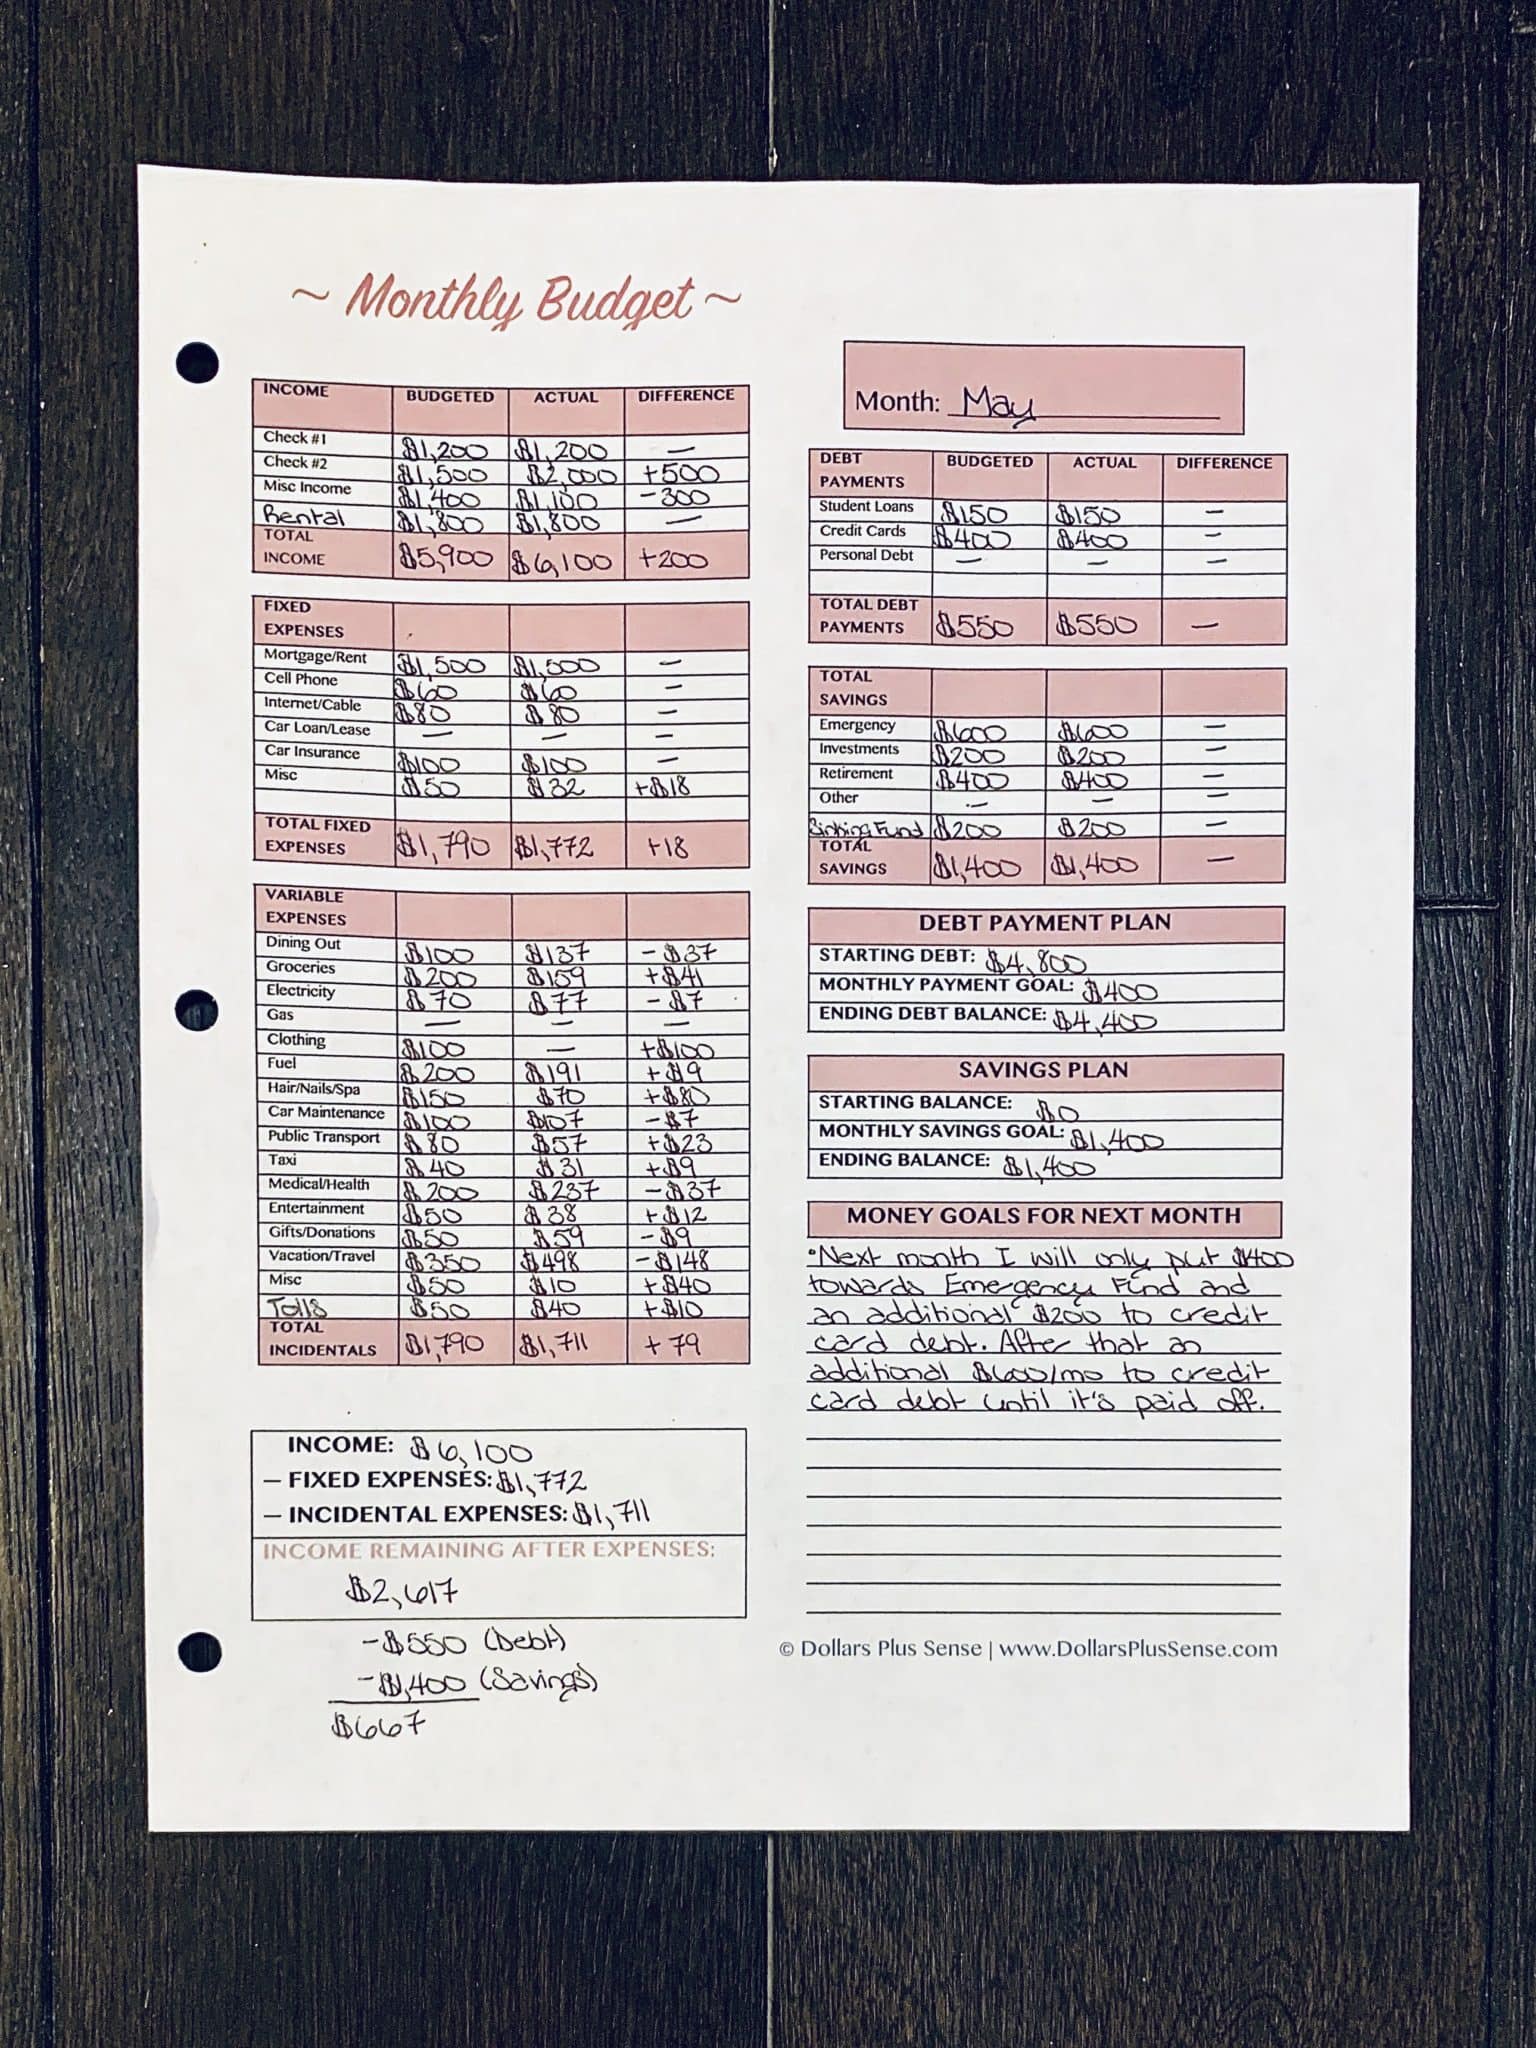 ~ Monthly Budget ~
Month: May
INCOME BUDGETED ACTUAL DIFFERENCE
Check #1 $1,200 $1,200 —
Check #2 $1,500 $2,000 +500
Misc Income $1,400 $1,100 -300
Rental $1,800 $1,800 —
TOTAL INCOME $5,900 $6,100 +200
FIXED EXPENSES
Mortgage/Rent $1,500 $1,500 —
Cell Phone $60 $60 —
Internet/Cable $80 $80 —
Car Loan/Lease — — —
Car Insurance $100 $100 —
Misc $50 $32 +$18
TOTAL FIXED EXPENSES $1,790 $1,772 +18
VARIABLE EXPENSES
Dining Out $100 $137 -$37
Groceries $200 $159 +$41
Electricity $70 $77 -$7
Gas — — —
Clothing $100 — +$100
Fuel $200 $191 +$9
Hair/Nails/Spa $150 $70 +$80
Car Maintenance $100 $107 -$7
Public Transport $80 $57 +$23
Taxi $40 $31 +$9
Medical/Health $200 $237 -$37
Entertainment $50 $38 +$12
Gifts/Donations $50 $59 -$9
Vacation/Travel $350 $498 -$148
Misc $50 $10 +$40
Tolls $50 $40 +$10
TOTAL INCIDENTALS $1,790 $1,711 +79
INCOME: $6,100
— FIXED EXPENSES: $1,772
— INCIDENTAL EXPENSES: $1,711
INCOME REMAINING AFTER EXPENSES:
$2,617
-$550 (Debt)
-$1,400 (Savings)
$667
DEBT PAYMENTS BUDGETED ACTUAL DIFFERENCE
Student Loans $150 $150 —
Credit Cards $400 $400 —
Personal Debt — — —
TOTAL DEBT PAYMENTS $550 $550 —
TOTAL SAVINGS
Emergency $600 $600 —
Investments $200 $200 —
Retirement $400 $400 —
Other — — —
Sinking Fund $200 $200 —
TOTAL SAVINGS $1,400 $1,400 —
DEBT PAYMENT PLAN
STARTING DEBT: $4,800
MONTHLY PAYMENT GOAL: $400
ENDING DEBT BALANCE: $4,400
SAVINGS PLAN
STARTING BALANCE: $0
MONTHLY SAVINGS GOAL: $1,400
ENDING BALANCE: $1,400
MONEY GOALS FOR NEXT MONTH
•Next month I will only put $400
towards Emergency Fund and
an additional $200 to credit
card debt. After that an
additional $600/mo to credit
card debt until it's paid off.
© Dollars Plus Sense | www.DollarsPlusSense.com